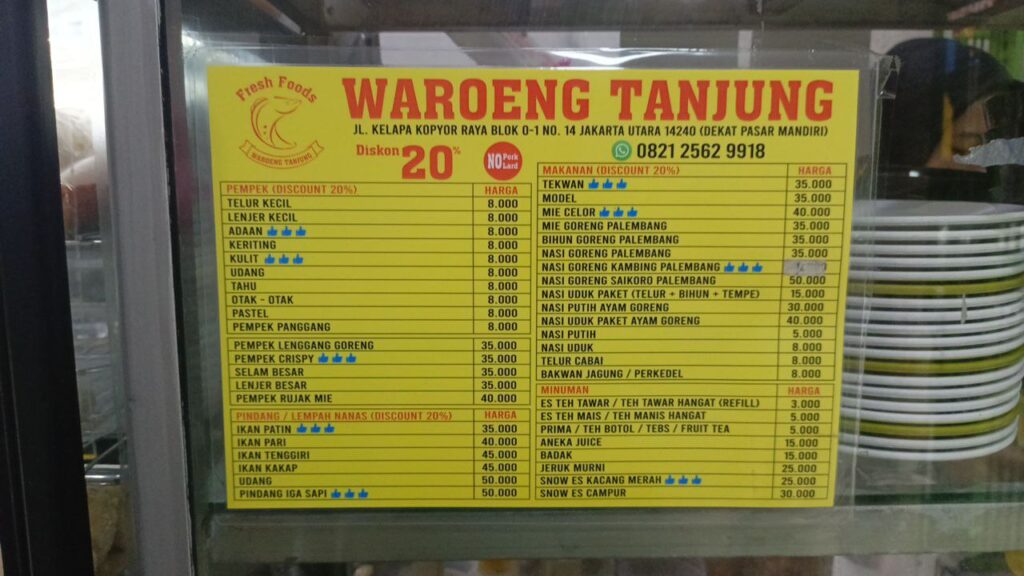 Fresh Foods
WAROENG TANJUNG
WAROENG TANJUNG
JL. KELAPA KOPYOR RAYA BLOK O-1 NO. 14 JAKARTA UTARA 14240 (DEKAT PASAR MANDIRI)
Diskon 20%
NO Pork Lard
0821 2562 9918
PEMPEK (DISCOUNT 20%) HARGA
TELUR KECIL 8.000
LENJER KECIL 8.000
ADAAN 8.000
KERITING 8.000
KULIT 8.000
UDANG 8.000
TAHU 8.000
OTAK - OTAK 8.000
PASTEL 8.000
PEMPEK PANGGANG 8.000
PEMPEK LENGGANG GORENG 35.000
PEMPEK CRISPY 35.000
SELAM BESAR 35.000
LENJER BESAR 35.000
PEMPEK RUJAK MIE 40.000
PINDANG / LEMPAH NANAS (DISCOUNT 20%) HARGA
IKAN PATIN 35.000
IKAN PARI 40.000
IKAN TENGGIRI 45.000
IKAN KAKAP 45.000
UDANG 50.000
PINDANG IGA SAPI 50.000
MAKANAN (DISCOUNT 20%) HARGA
TEKWAN 35.000
MODEL 35.000
MIE CELOR 40.000
MIE GORENG PALEMBANG 35.000
BIHUN GORENG PALEMBANG 35.000
NASI GORENG PALEMBANG 35.000
NASI GORENG KAMBING PALEMBANG
NASI GORENG SAIKORO PALEMBANG 50.000
NASI UDUK PAKET (TELUR + BIHUN + TEMPE) 15.000
NASI PUTIH AYAM GORENG 30.000
NASI UDUK PAKET AYAM GORENG 40.000
NASI PUTIH 5.000
NASI UDUK 8.000
TELUR CABAI 8.000
BAKWAN JAGUNG / PERKEDEL 8.000
MINUMAN HARGA
ES TEH TAWAR / TEH TAWAR HANGAT (REFILL) 3.000
ES TEH MAIS / TEH MANIS HANGAT 5.000
PRIMA / TEH BOTOL / TEBS / FRUIT TEA 5.000
ANEKA JUICE 15.000
BADAK 15.000
JERUK MURNI 25.000
SNOW ES KACANG MERAH 25.000
SNOW ES CAMPUR 30.000